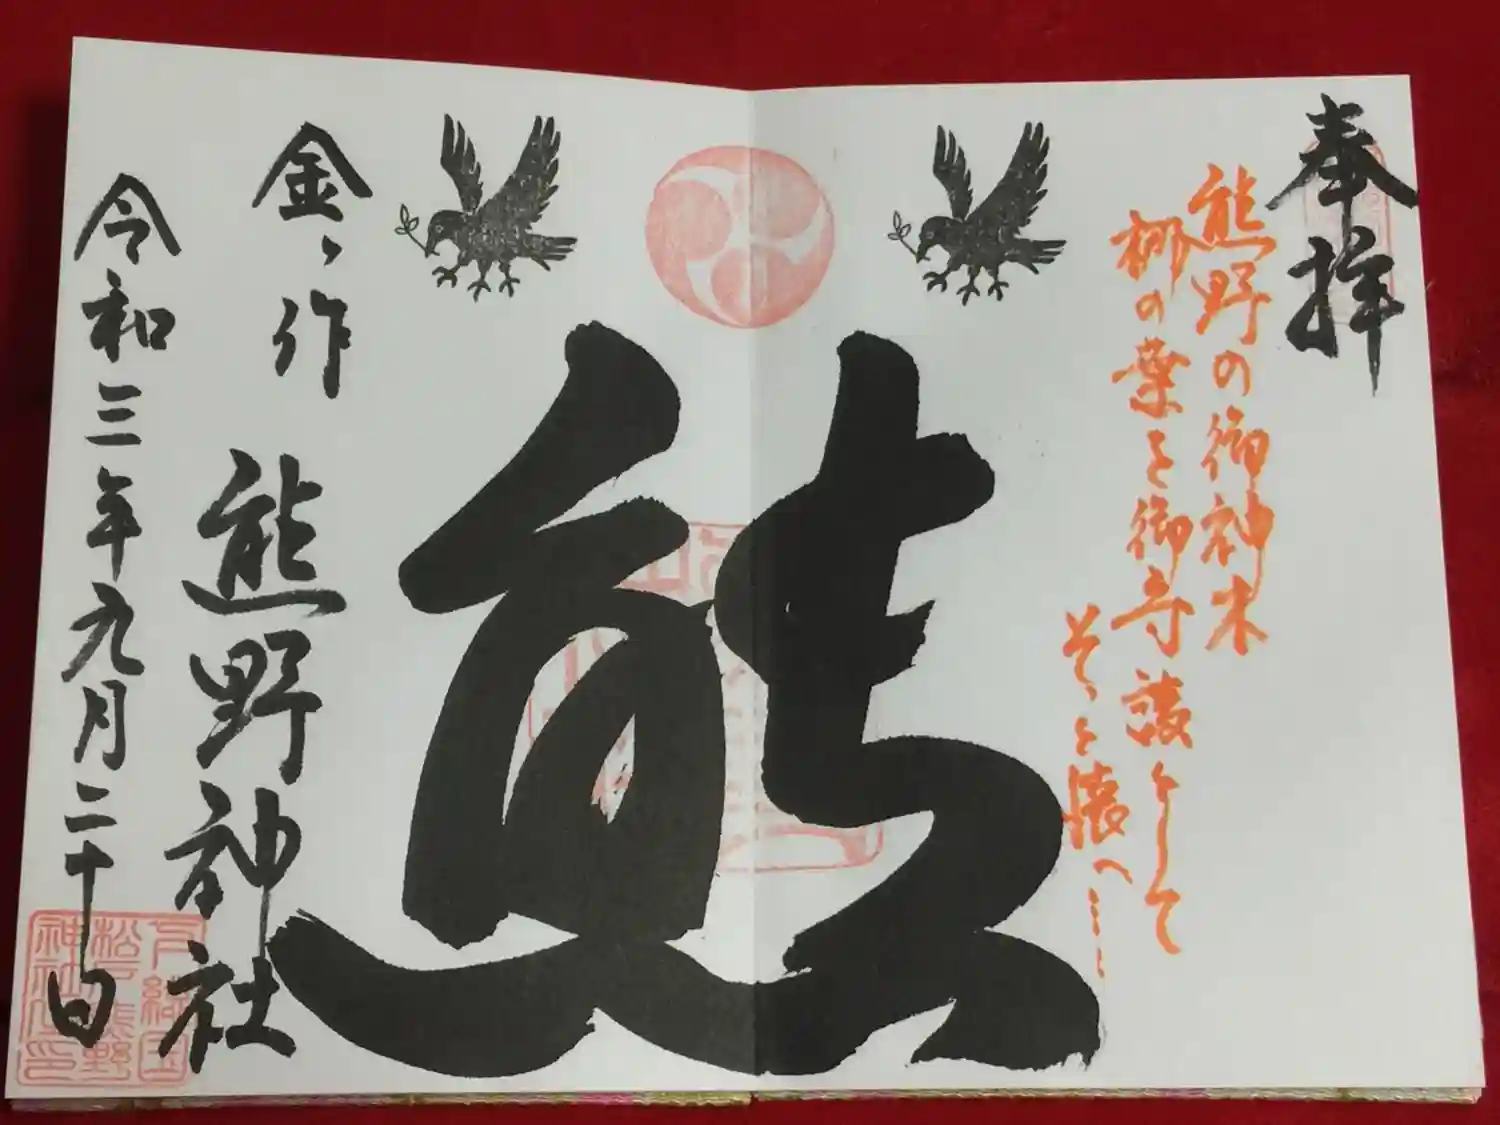 奉拝
熊野の御神木
梛の葉を御守護として
そっと懐へ……
熊
金ヶ作 熊野神社
令和三年九月二十日